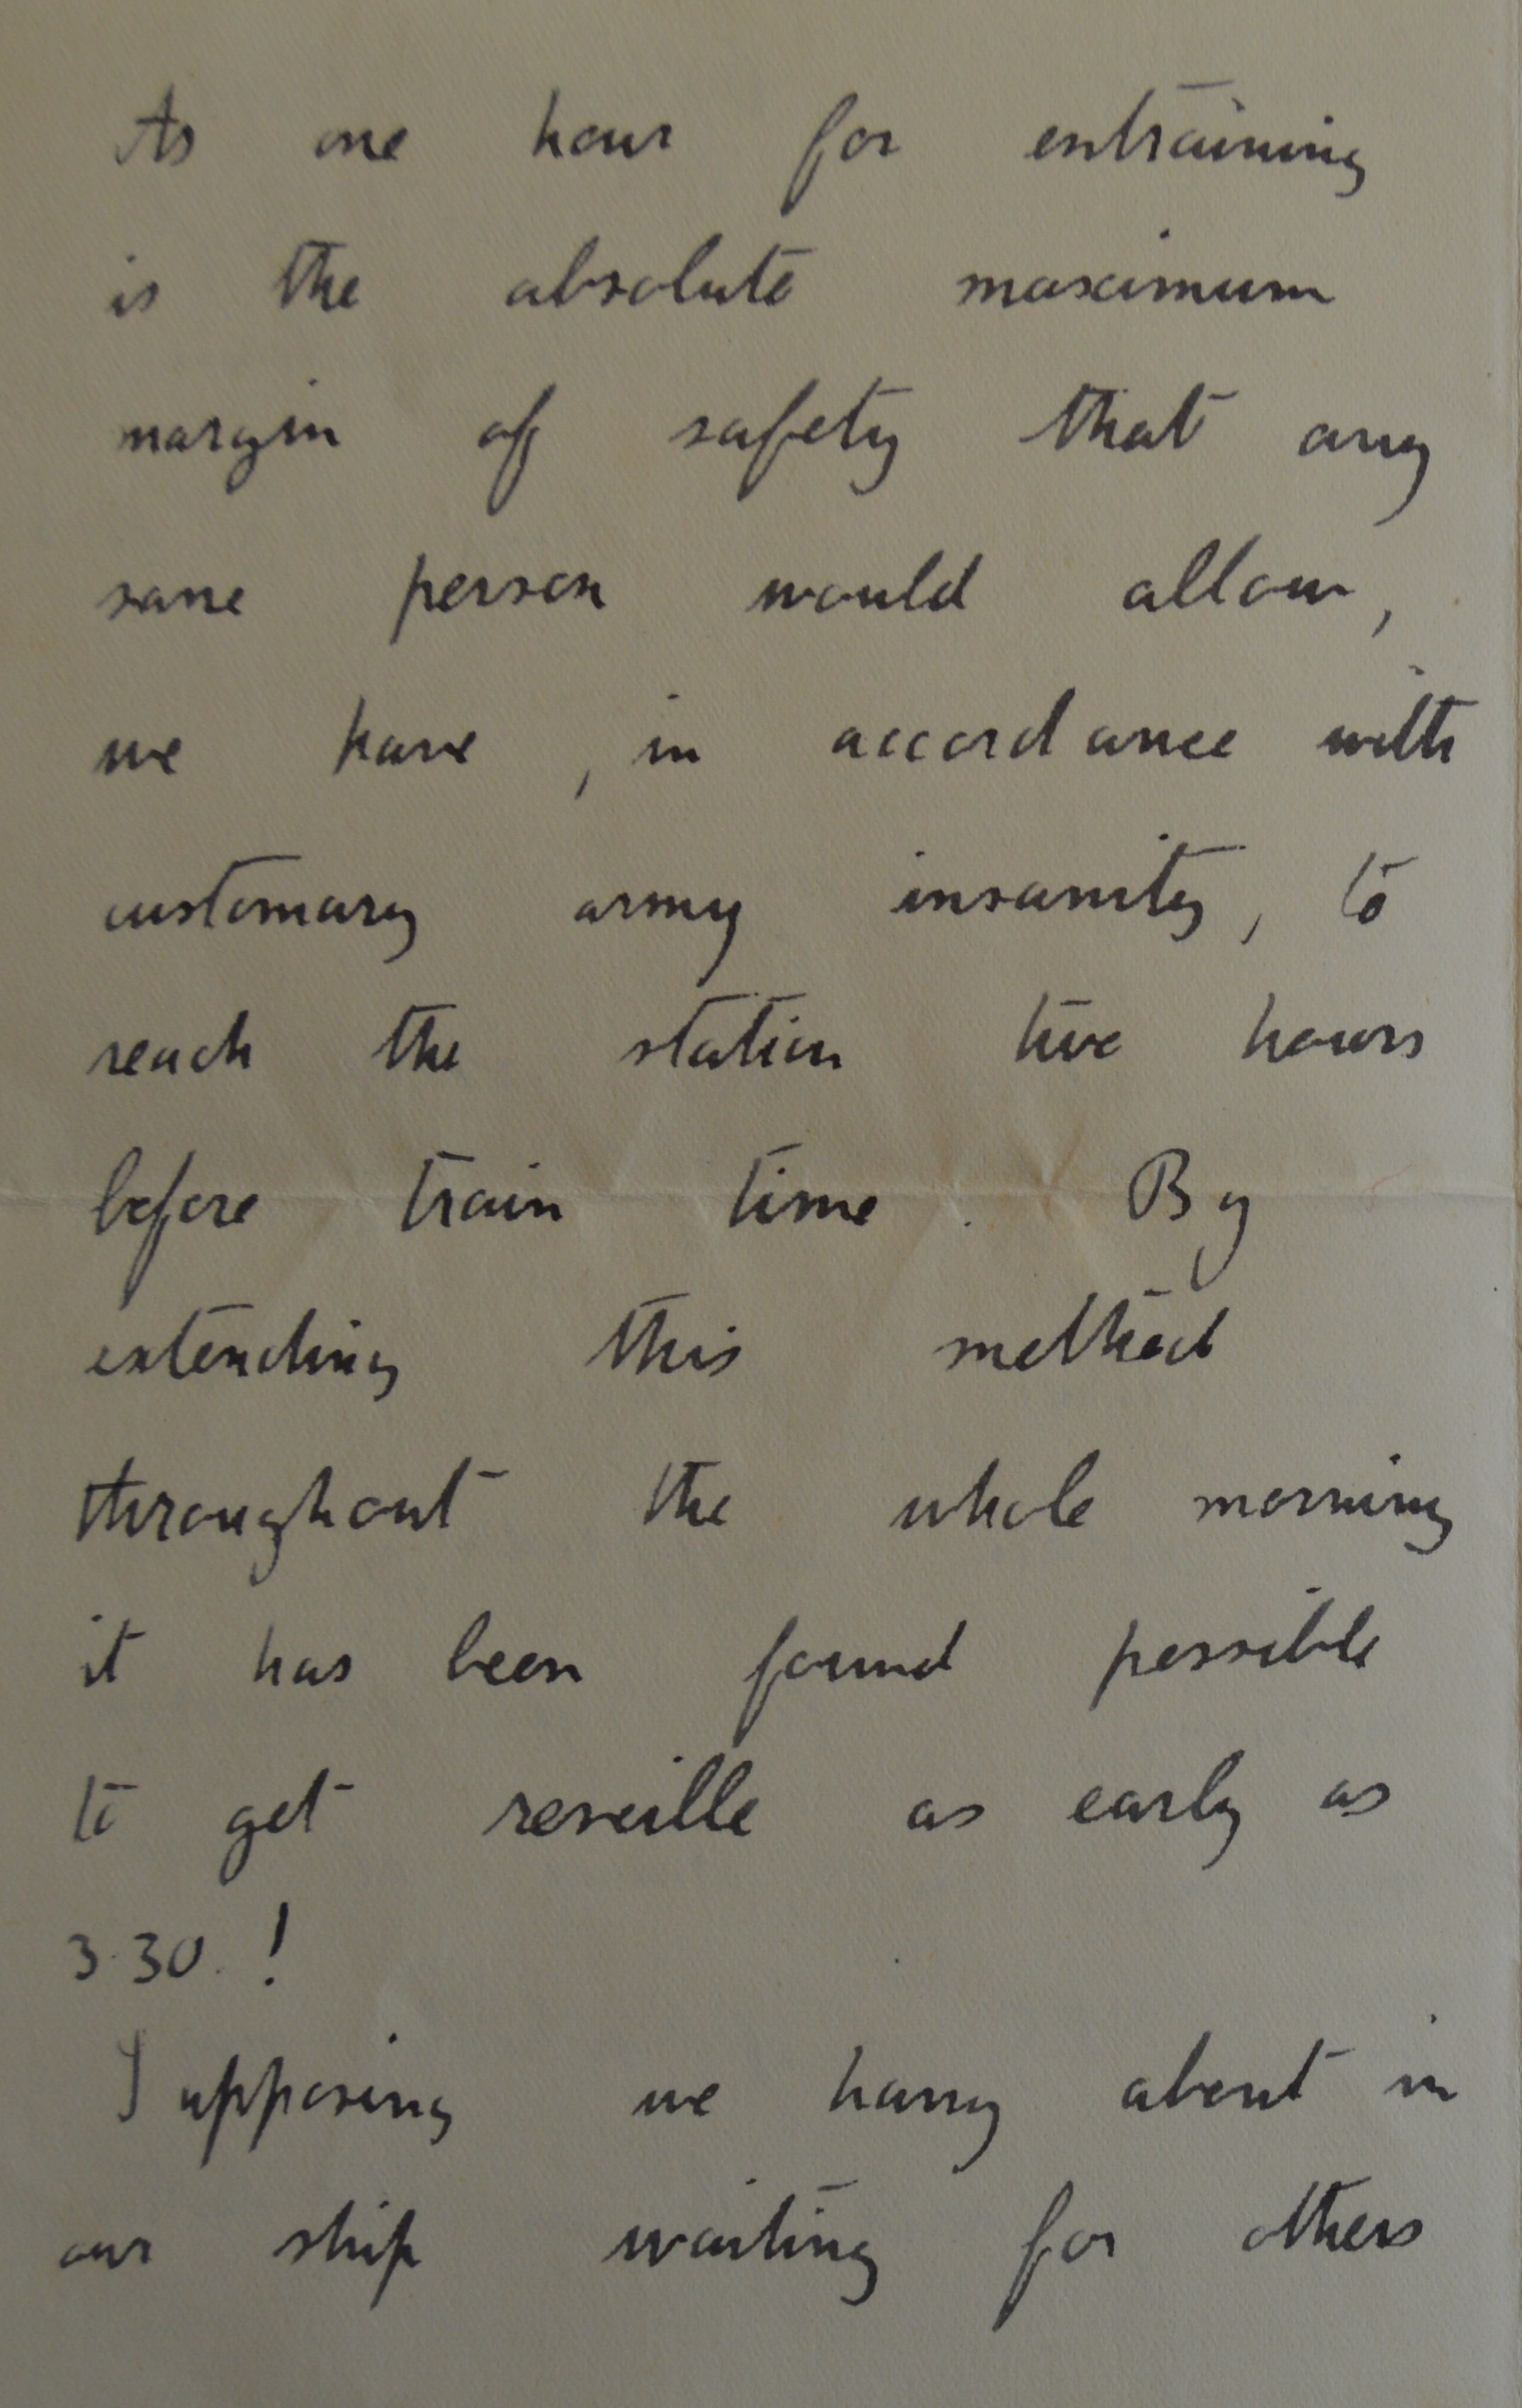 As one hour for entraining
is the absolute maximum
margin of safety that any
sane person would allow,
we have, in accordance with
customary army insanity, to
reach the station two hours
before train time. By
extending this method
throughout the whole morning
it has been found possible
to get reveille as early as
3.30. !
Supposing we hang about in
our ship waiting for others